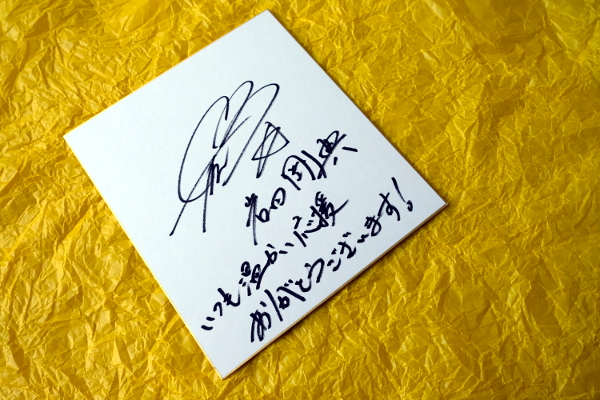 岩田剛典
いつも温かい応援
ありがとうございます!